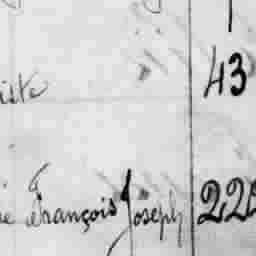 iste 43
ie François Joseph 222